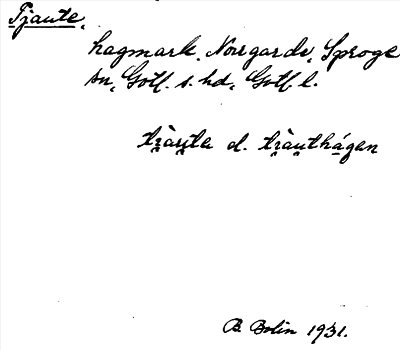 Tjaute,
hagmark, Norrgarde, Sproge
sn, Gotl. s. hd, Gotl. l.
tjàute d. tjàuthágen
B. Bolin 1931.